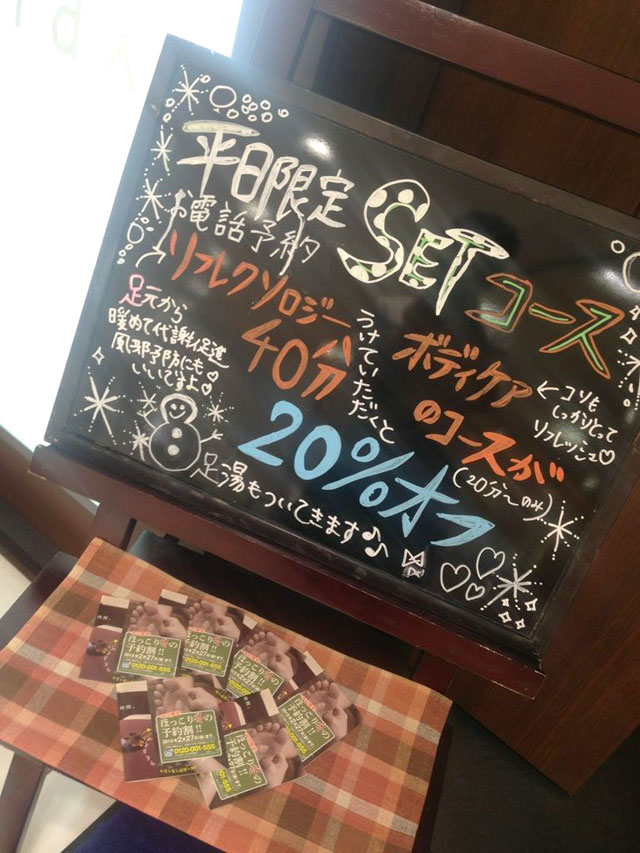 平日限定 SETコース
お電話予約
リフレクソロジー
40分
うけていただくと
ボディケア
のコースが
(20分〜のみ)
20%オフ
足元から
暖めて代謝促進
風邪予防にも
いいですよ♡
← コリも
しっかりとって
リフレッシュ♡
足湯もついてきます♪♪
ほっこり冬の
予約割!!
0120-001-555
ほっこり冬の
予約割!!
2月27日
0120-001-555